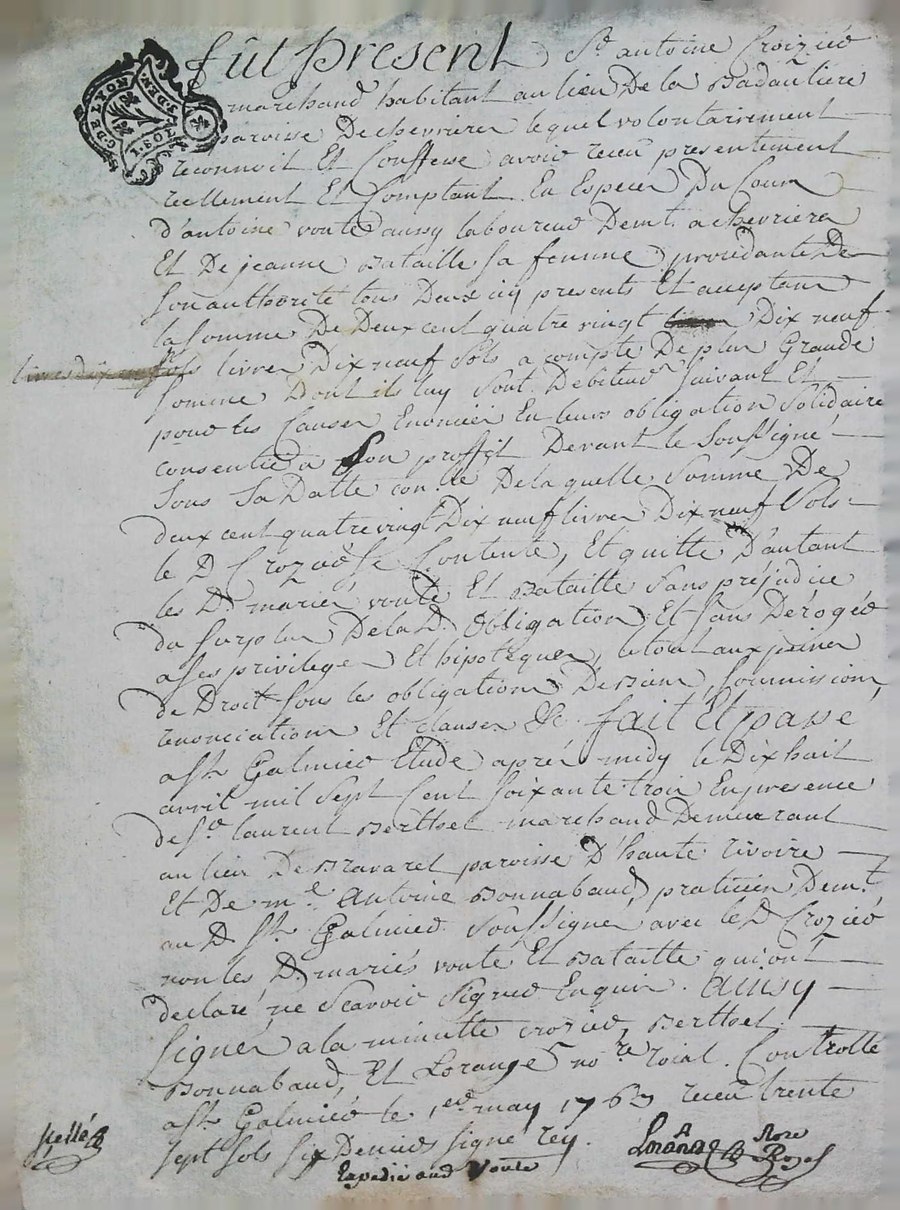 G. DE LYON
1. SOL
fût present Sr. antoine Croizier
marchand habitant au lieu De la Badauliere
paroisse De chevriere lequel volontairement
reconnoit Et Confesse avoir receu presentement
reellement Et Comptant En Especes Du Cours
d'antoine voute aussy laboureur Demt. a chevriere
Et De jeanne Bataille sa femme procedante De
son authorité tous Deux icy presents Et acceptans
la somme De Deux cent quatre vingt Dix neuf
livres Dix neuf sols a compte De plus Grande
somme Dont ils luy sont Debiteurs suivant Et
pour les Causes Enoncées En leurs obligation solidaire
consentie a son proffit Devant le soussigné
sous sa Datte con lé De laquelle somme De
deux cent quatre vingt Dix neuf livres Dix neuf sols
le D. Crozier se Contente, Et quitte D'autant
les D. mariés voute Et Bataille sans prejudice
du surplus De la D. obligation Et sans Deroger
a ses privilege Et hipoteques, le tout aux peines
de Droit sous les obligations De biens, soumissions
renonciations Et clauses &c fait Et passé
a St. Galmier Etude aprés midy le Dix huit
avril mil sept Cent soixante trois En presence
de Sr. laurent Berthet marchand Demeurant
au lieu De Bravaret paroisse D'haute rivoire
Et De me. Antoine Bonnabaud, praticien Demt.
au D. St. Galmier soussignés avec le D. Crozier
non les D. mariés voute Et Bataille qui ont
declaré ne scavoir signer Enquis. Ainsy
signés a la minutte crozier, Berthet,
Bonnabaud, Et Lorange nore. roial. Controllé
a St. Galmier le 1er. may 1763 receu trente
sept sols six Deniers signé rey.
scellé
Lorange Nore Royal
Expedié aud Voute